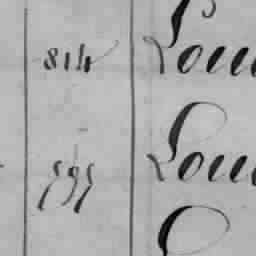 814 Lou
595 Lou